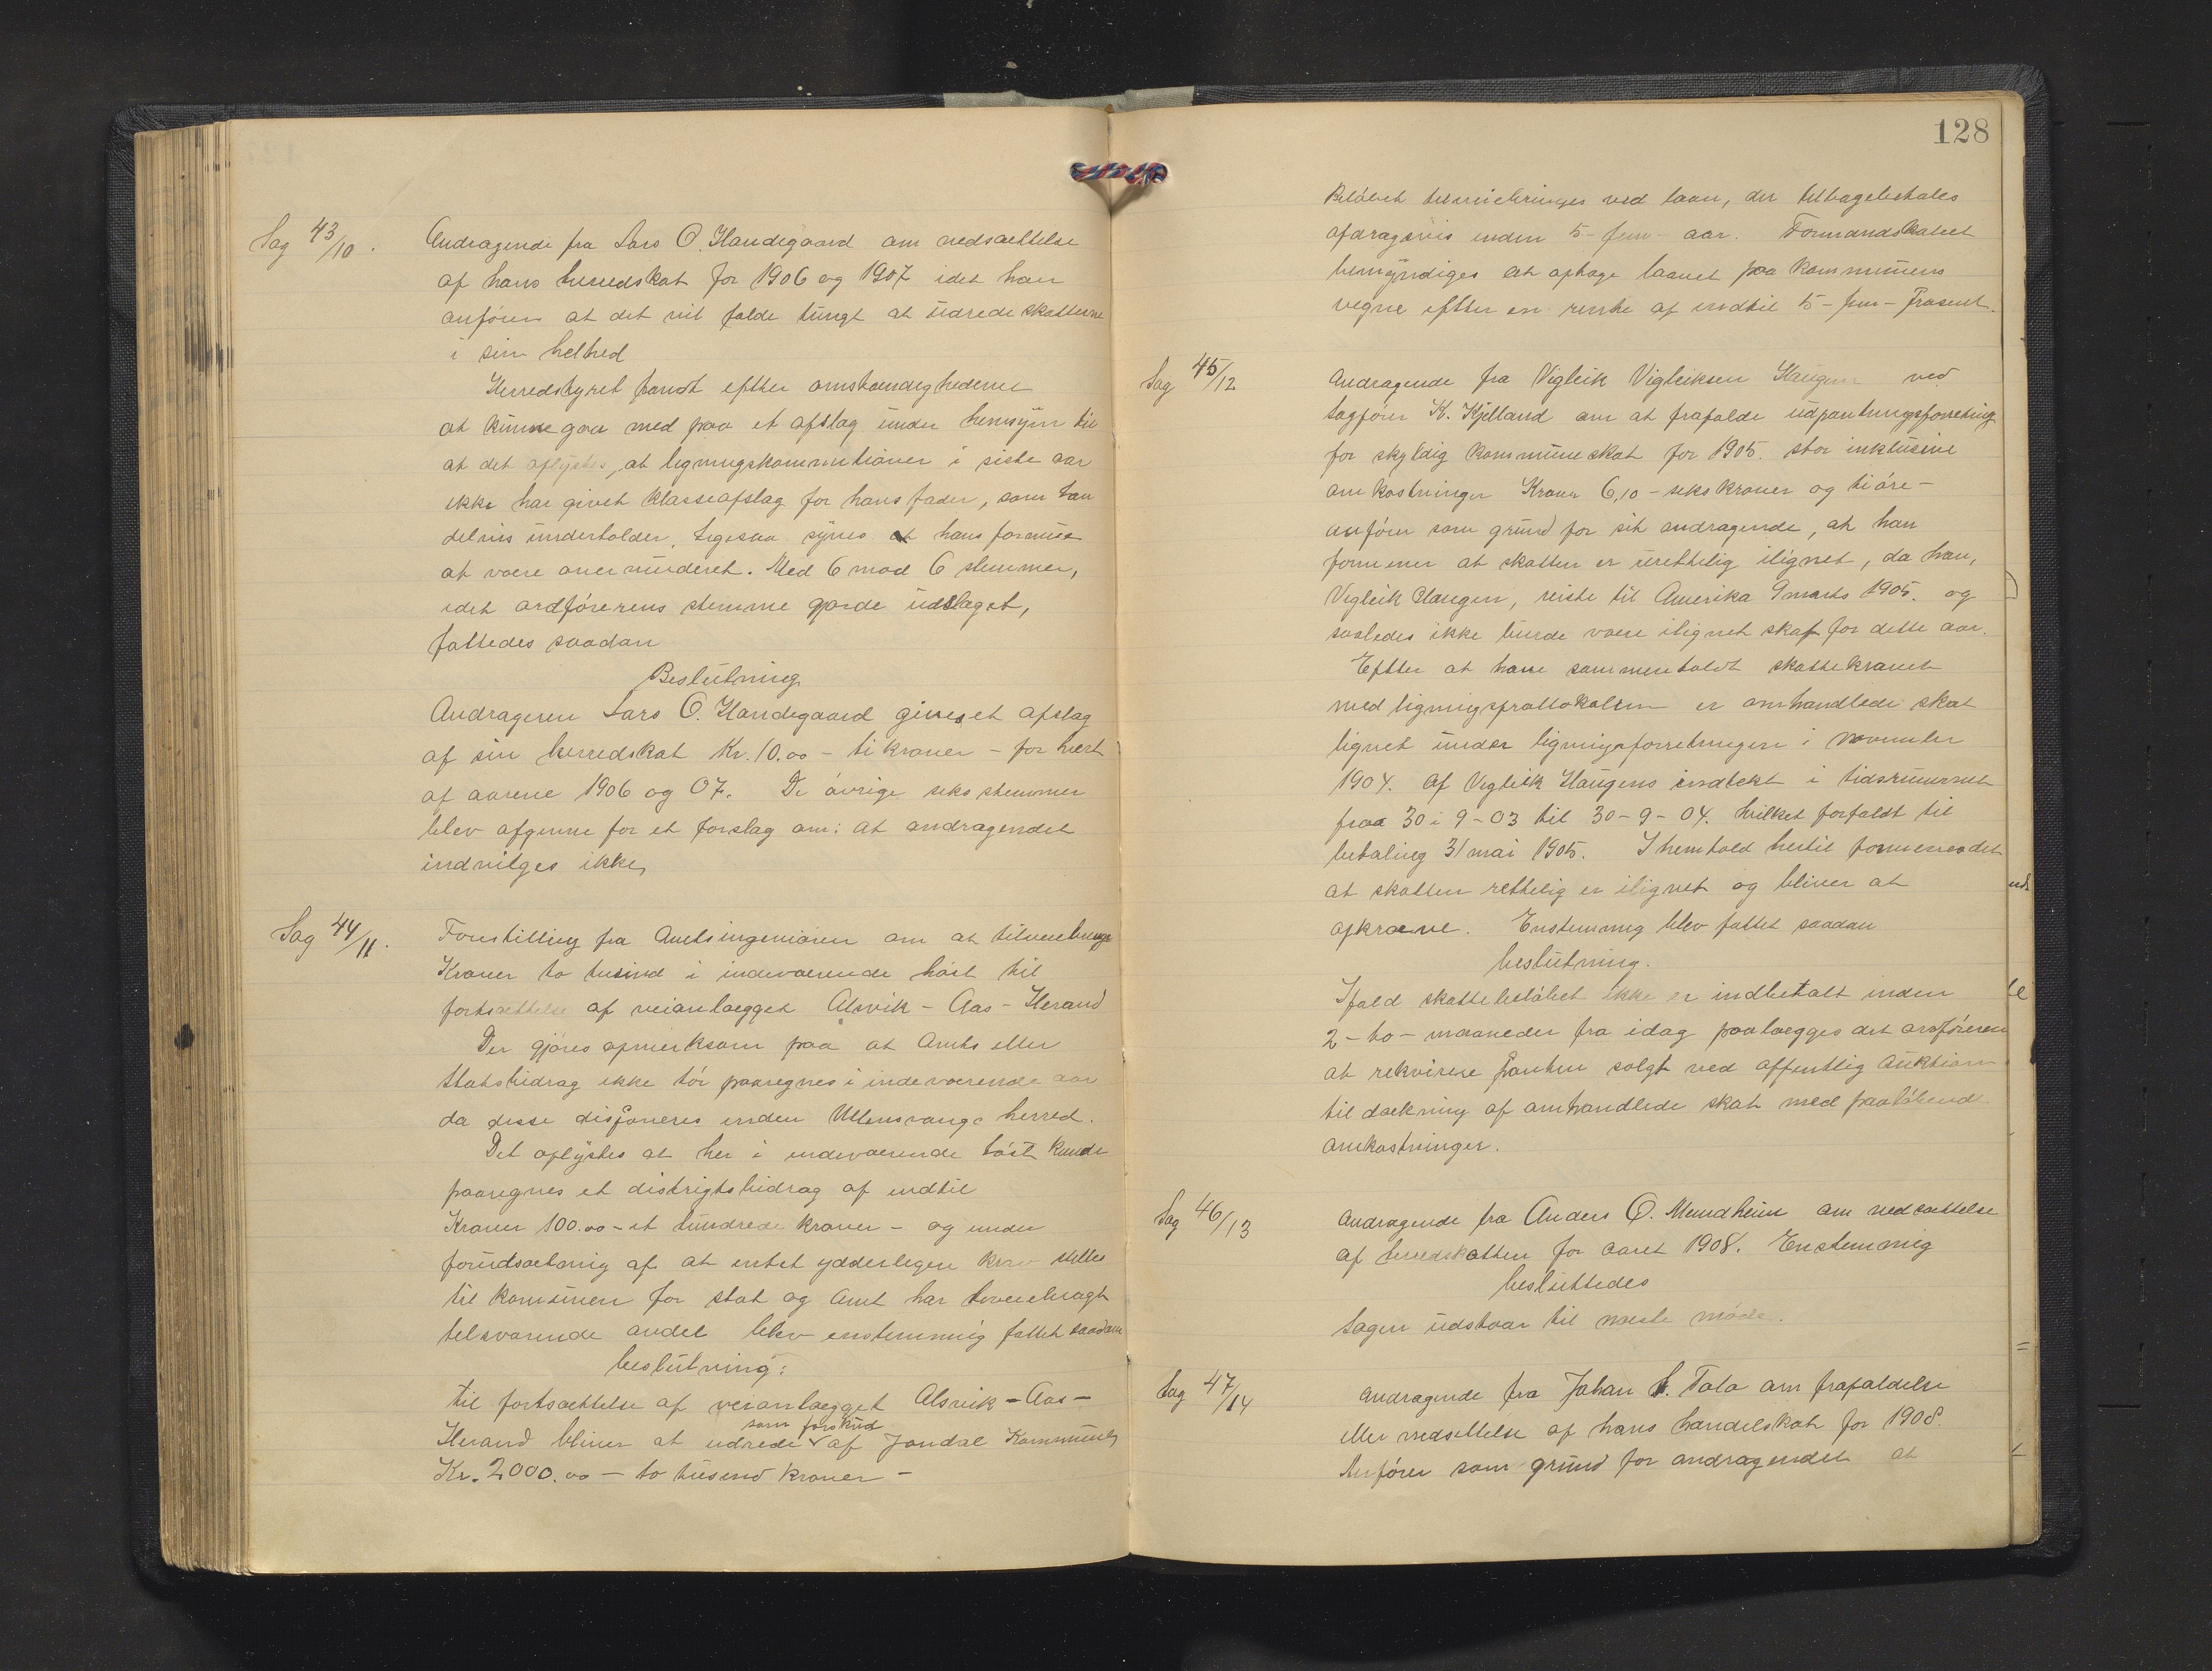 Sag 43/10.
Andragende fra Lars O. Handegaard om nedsættelse
af hans herredskat for 1906 og 1907 idet han
anfører at det vil falde tungt at udrede skatterne
i sin helhed
Herredstyret fandt efter omstændighederne
at kunne gaa med paa et afslag under hensyn til
at det oplystes, at ligningskommitionen i siste aar
ikke har givet klasseafslag for hans fader, som han
delvis underholder. Ligesaa synes at hans formue
at være overvurderet. Med 6 mod 6 stemmer,
idet ordførerens stemme gjorde udslaget,
fattedes saadan
Beslutning
Andrageren Lars O. Handegaard gives et afslag
af sin herredskat Kr. 10.00 - ti kroner - for hvert
af aarene 1906 og 07. De øvrige seks stemmer
blev afgivne for et forslag om: at andragendet
indvilges ikke,
Sag 44/11.
Forestilling fra Amtsingeniøren om at tilveiebringe
Kroner to tusind i indeværende høst til
fortsættelse af veianlægget Alsvik - Aas - Herand
Der gjøres opmerksom paa at Amts eller
Statsbidrag ikke tør paaregnes i indeværende aar
da disse disponeres inden Ullensvangs herred.
Det oplystes at her i indeværende høst kunde
paaregnes et distrigtsbidrag af indtil
Kroner 100.00 - et hundrede kroner - og under
forudsætning af at intet ydderligere krav stilles
til kommunen før stat og Amt har tilveiebragt
tilsvarende andel blev enstemmig fattet saadan
beslutning:
til fortsættelse af veianlægget Alsvik - Aas -
som forskud
Herand bliver at udrede af Jondal Kommune
Kr. 2000.00 - to tusend kroner -
128
Beløbet tilveiebringes ved laan, der tilbagebetales
afdragsvis inden 5 - fem - aar. Formandskabet
bemyndiges at optage laanet paa kommunens
vegne efter en rente af indtil 5 - fem - Prosent.
Sag 45/12
Andragende fra Vigleik Vigleiksen Haugen ved
Sagfører K. Kjelland om at frafalde udpantningsforretning
for skyldig kommuneskat for 1905. stor inklusive
omkostninger Kroner 6,10 - seks kroner og ti øre -
anfører som grund for sit andragende, at han
formener at skatten er urettelig ilignet, da han,
Vigleik Haugen, reiste til Amerika 9 marts 1905. og
saaledes ikke burde være ilignet skat for dette aar.
Efter at have sammenholdt skattekravet
med ligningsprottokollen er omhandlede skat
lignet under ligningsforretningen i November
1904. Af Vigleik Haugens indtekt i tidsrummet
fraa 30 i 9 - 03 til 30 - 9 - 04. hvilket forfaldt til
betaling 31 mai 1905. I henhold hertil formenes det
at skatten rettelig er ilignet og bliver at
opkræve. Enstemmig blev fattet saadan
beslutning.
Ifald skattebeløbet ikke er indbetalt inden
2 - to - maaneder fra idag paalægges det ordføreren
at rekvirere Panten solgt ved offentlig Auktion
til dækning af omhandlede skat med paaløbende
omkostninger.
Sag 46/13
Andragende fra Anders O. Mundheim om nedsættelse
af herredskatten for aaret 1908. Enstemmig
besluttedes
Sagen udstaar til næste møde.
Sag 47/14
Andragende fra Johan Tolo om frafaldelse
eller nedsettelse af hans handelskat for 1908.
Anfører som grund for andragendet at